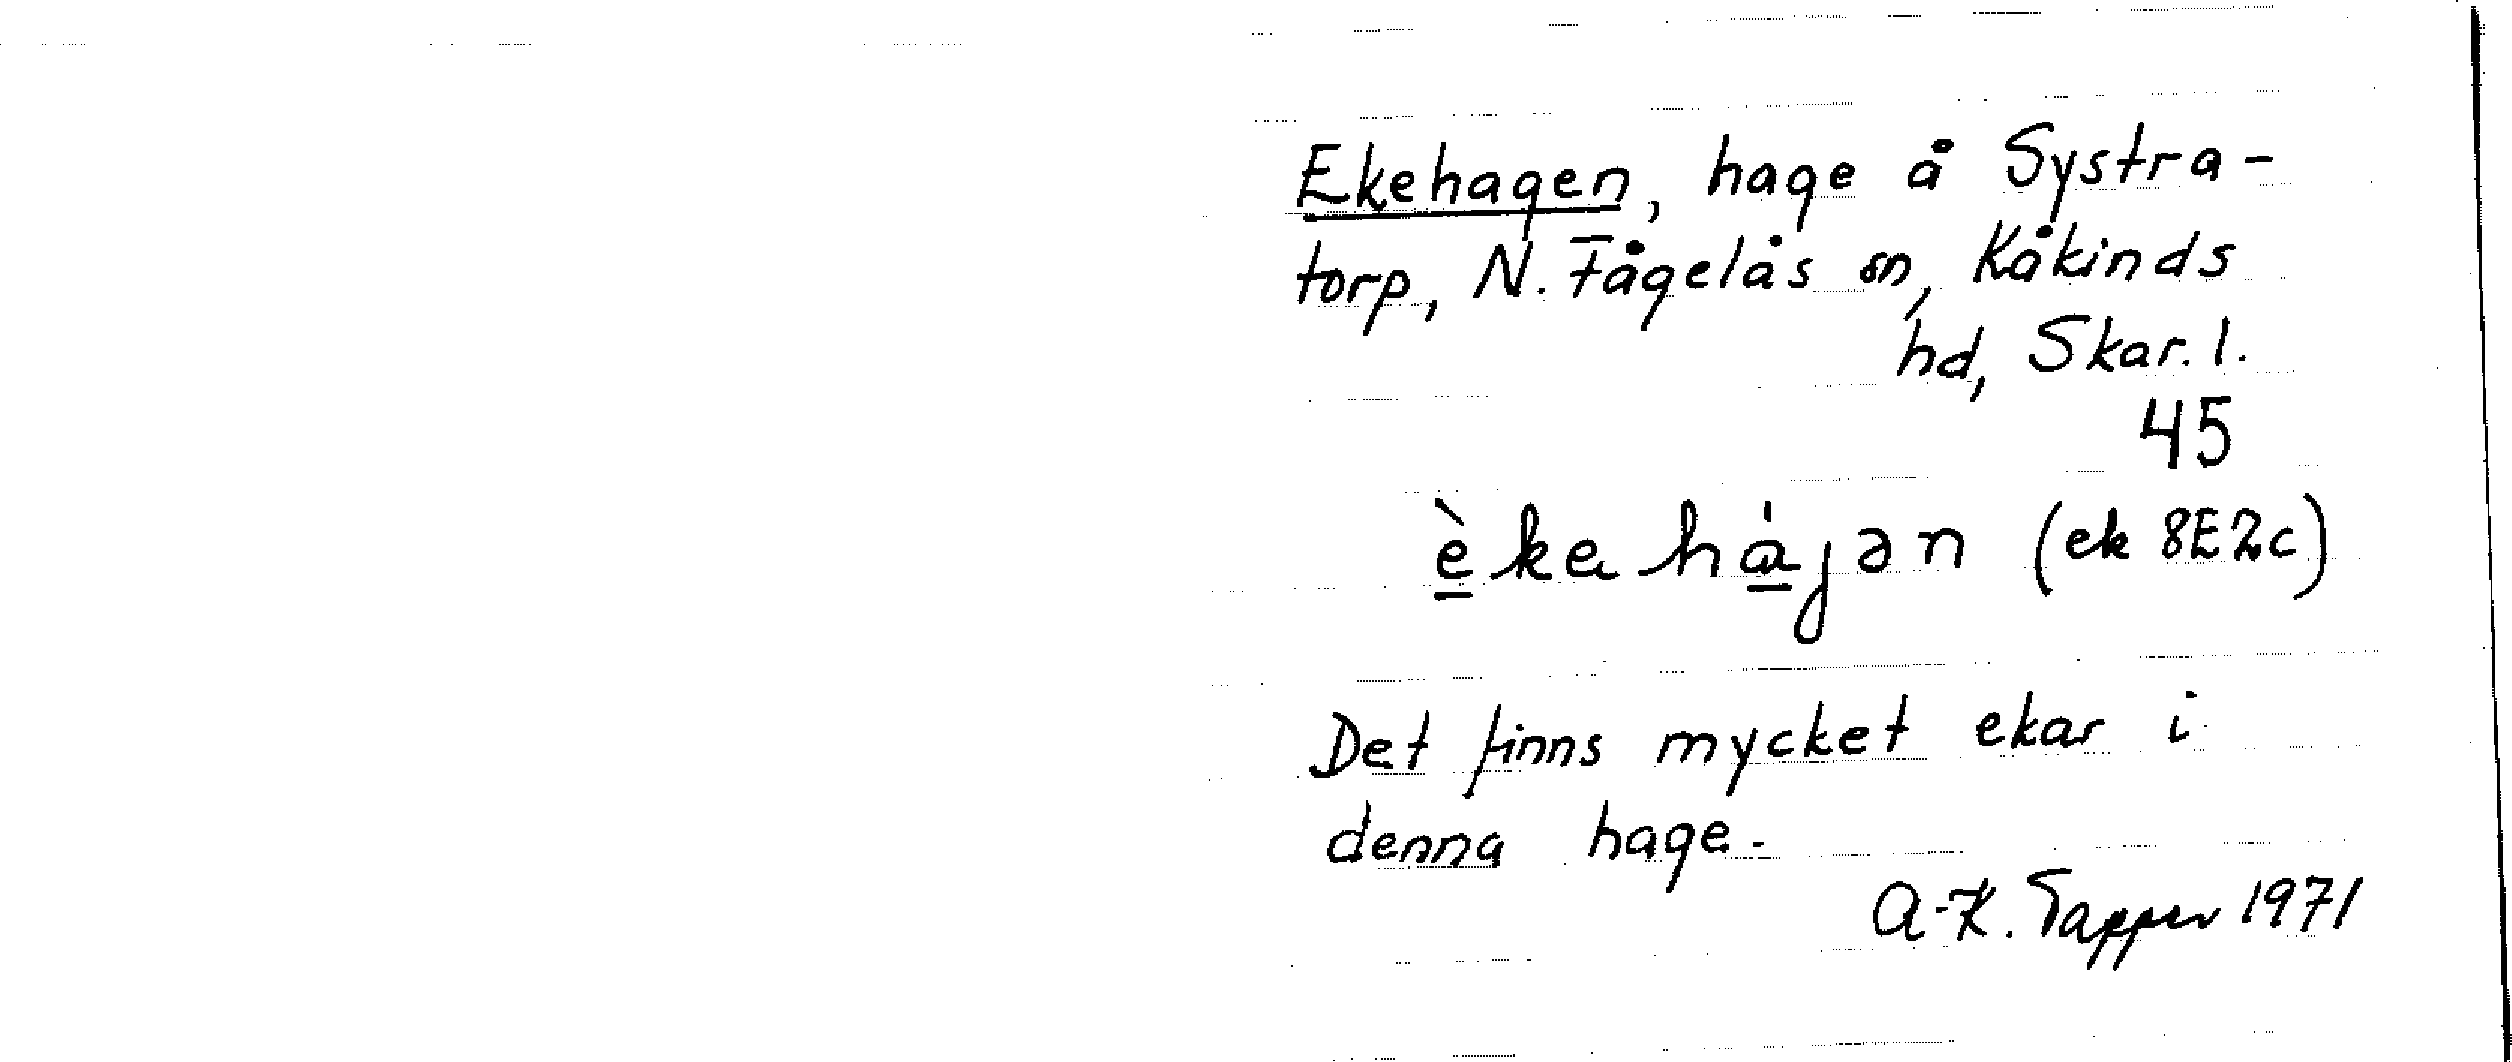 Ekehagen, hage å Systra-
torp, N. Fågelås sn, Kåkinds
hd, Skar. l.
45
èkahájən (ek 8E2c)
Det finns mycket ekar i
denna hage.
A-K. Tapper 1971